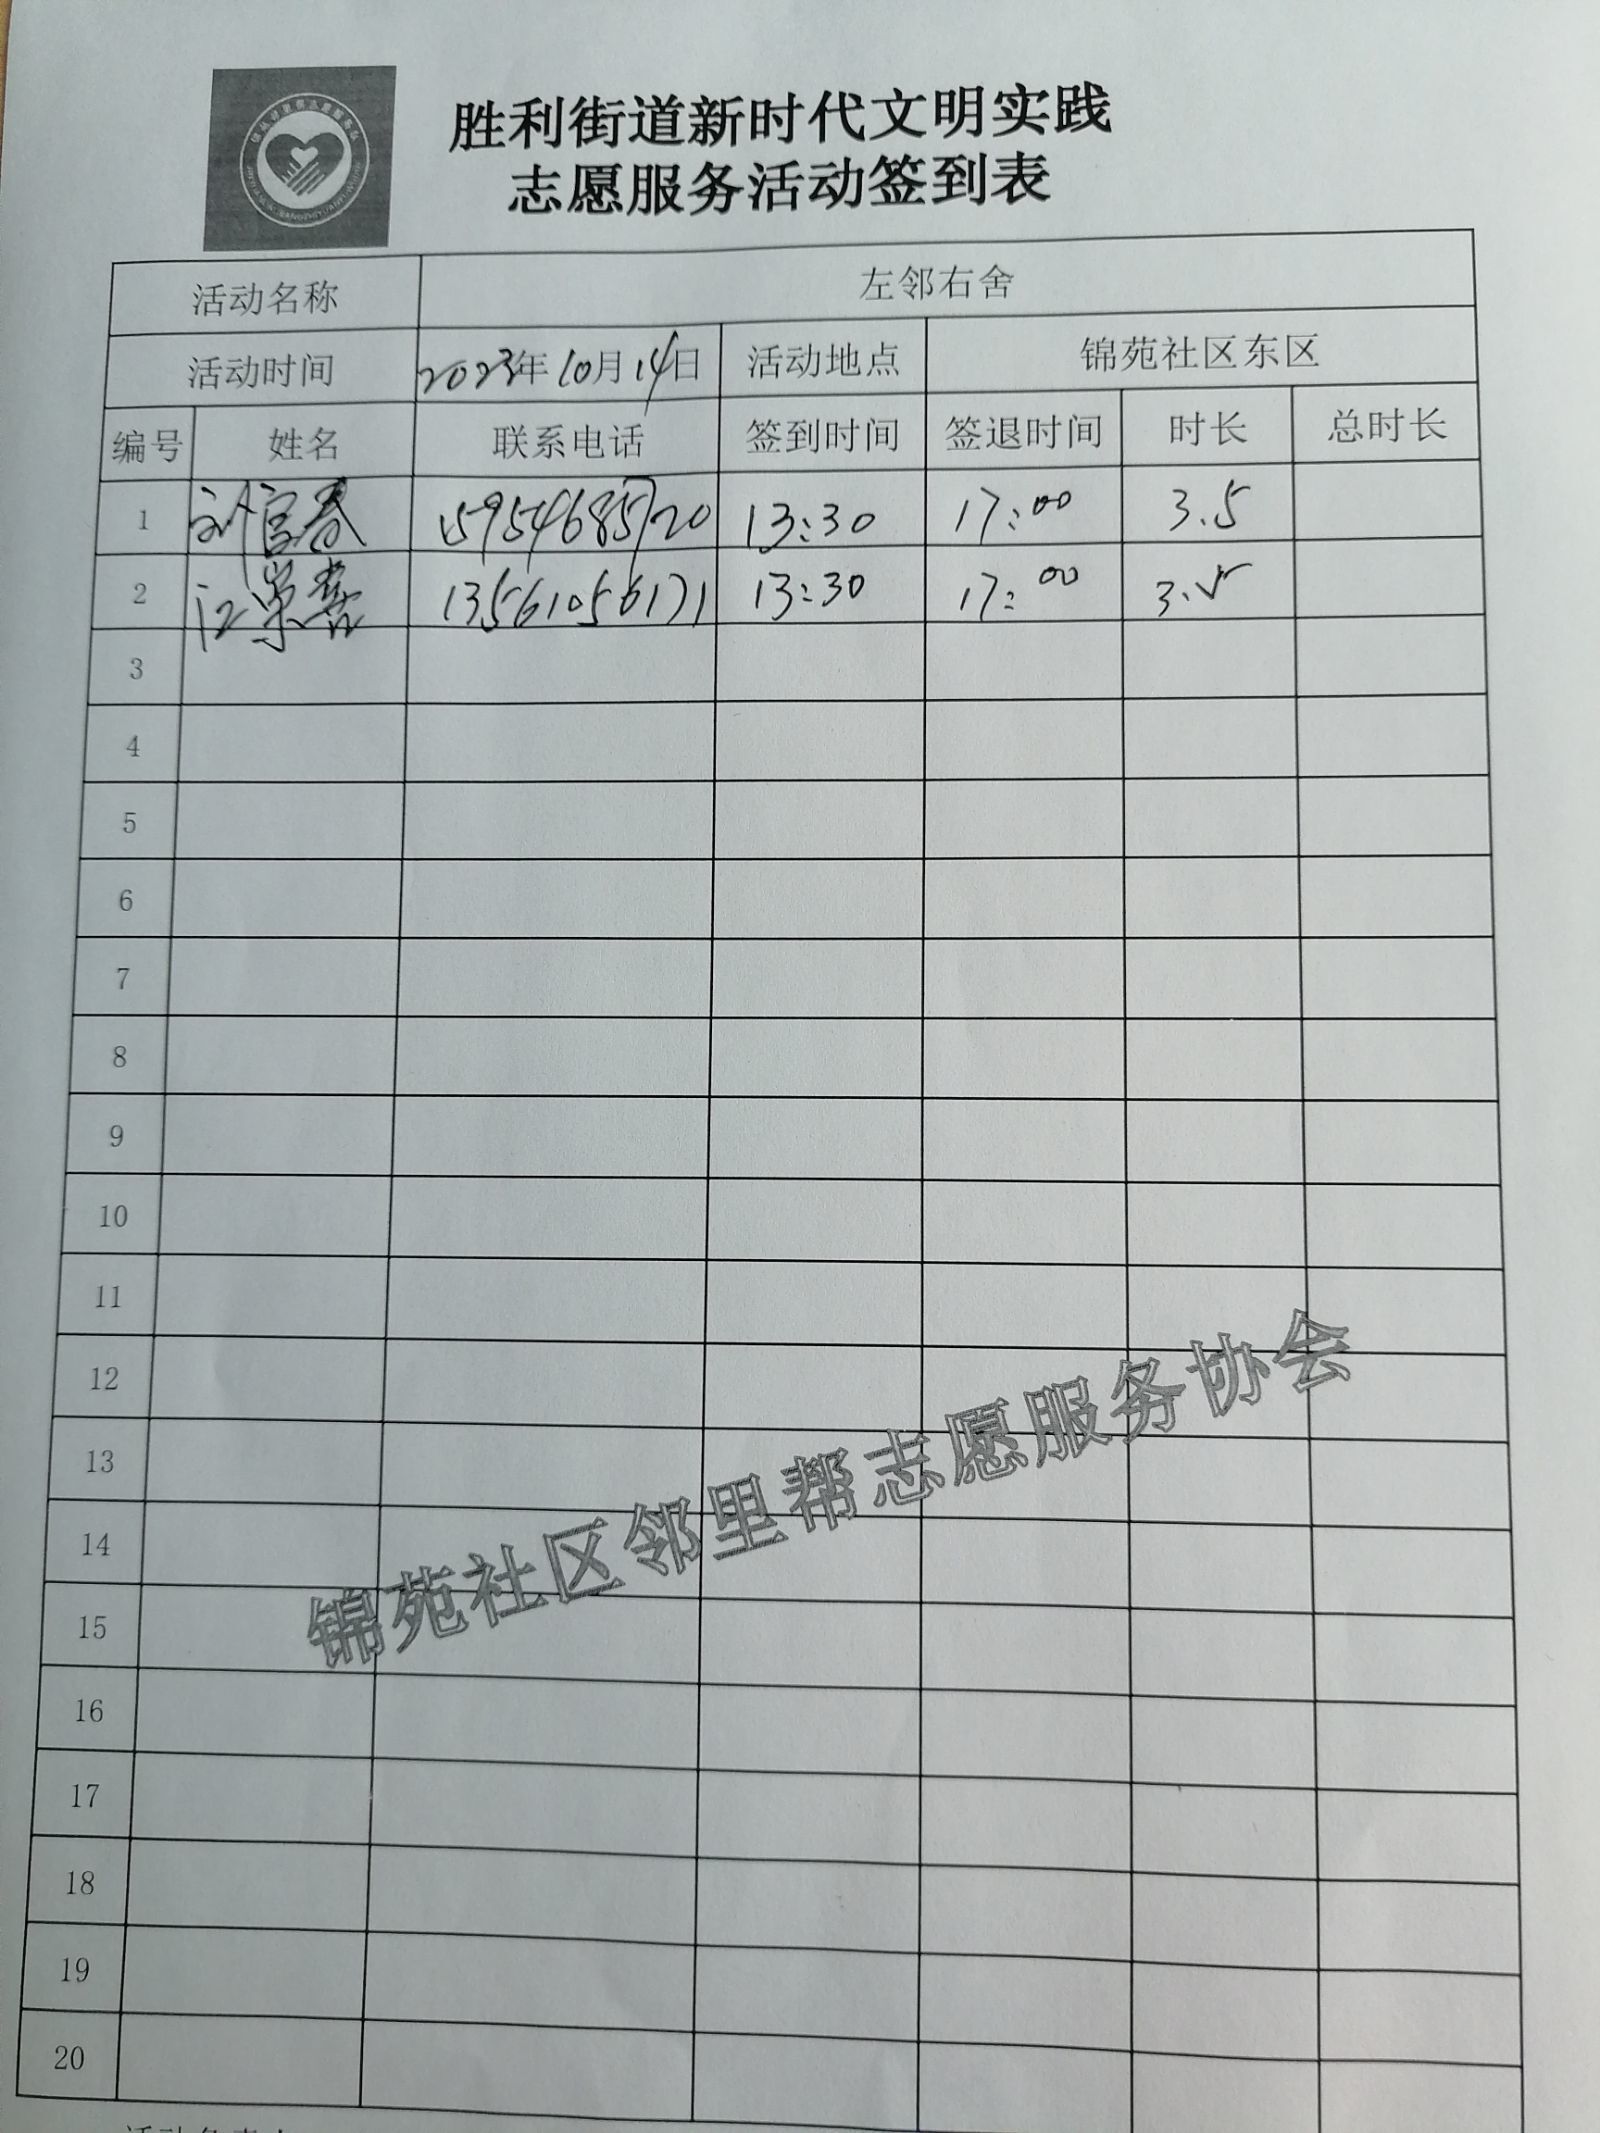 胜利街道新时代文明实践
志愿服务活动签到表
活动名称 左邻右舍
活动时间 2023年10月14日 活动地点 锦苑社区东区
编号 姓名 联系电话 签到时间 签退时间 时长 总时长
1 刘官春 15954685720 13:30 17:00 3.5
2 江荣喜 13561056171 13:30 17:00 3.5
3
4
5
6
7
8
9
10
11
12
13
14
15
16
17
18
19
20
锦苑社区邻里帮志愿服务协会